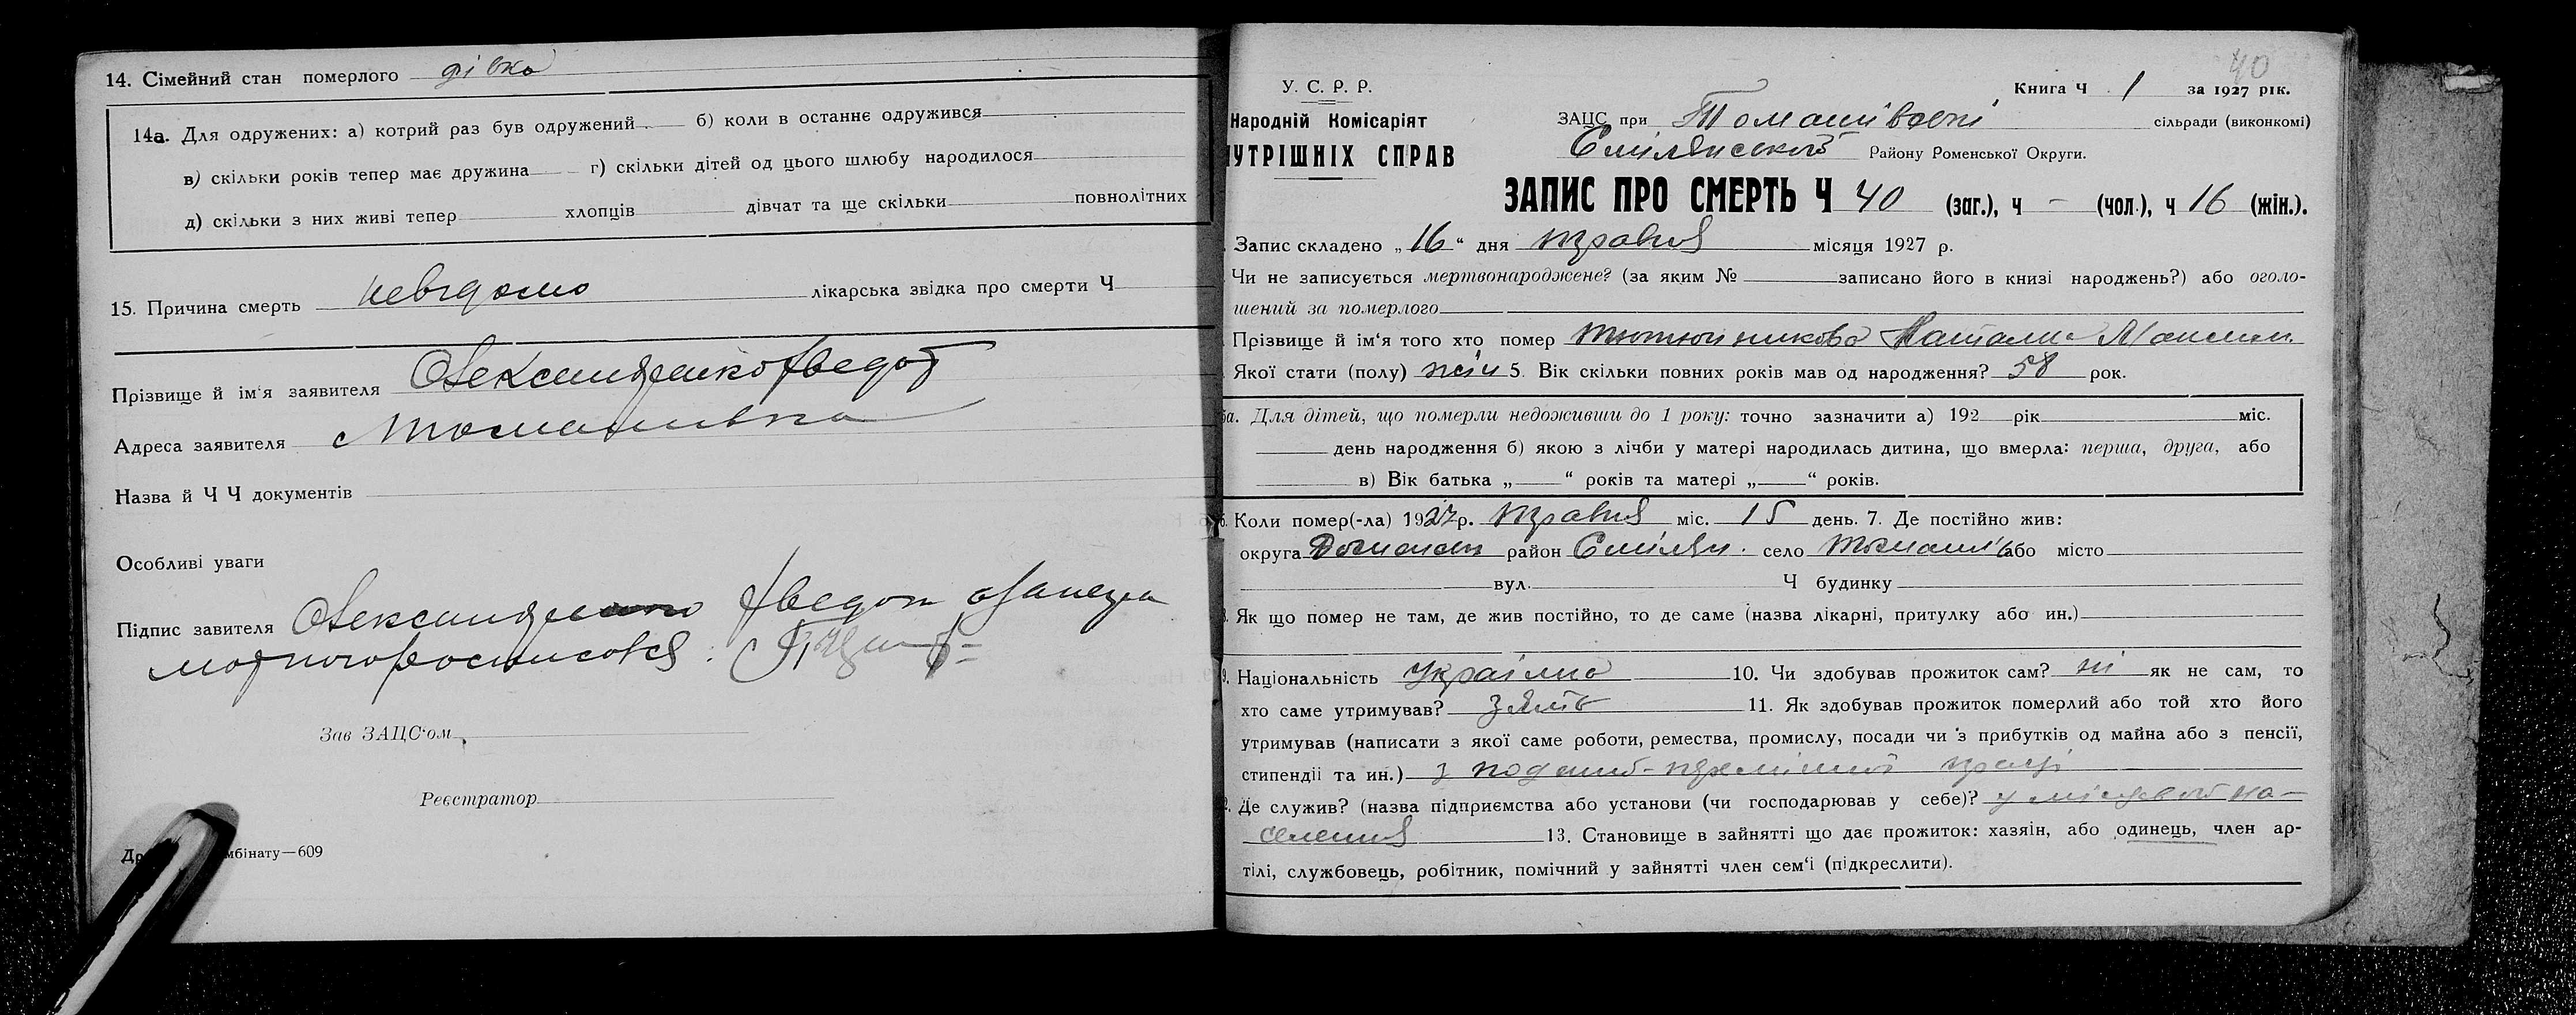 14. Сімейний стан померлого дівка
14а. Для одружених: а) котрий раз був одружений б) коли в останнє одружився
в) скільки років тепер має дружина г) скільки дітей од цього шлюбу народилося
д) скільки з них живі тепер хлопців дівчат та ще скільки повнолітних
15. Причина смерть невідомо лікарська звідка про смерти Ч
Прізвище й ім'я заявителя Олександренко Хведот
Адреса заявителя с Томашивка
Назва й Ч Ч документів
Особливі уваги
Підпис завителя Олександренко Хведот
Зав ЗАЦС'ом
Реєстратор
мбінату—609
40
У. С. Р. Р.
Книга Ч 1 за 1927 рік.
Народній Комісаріят
ЗАЦС при Томашівській сільради (виконкомі)
УТРІШНІХ СПРАВ
Смілянського Району Роменської Округи.
ЗАПИС ПРО СМЕРТЬ Ч 40 (заг.), ч - (чол.), ч 16 (жін.).
Запис складено „16“ дня травня місяця 1927 р.
Чи не записується мертвонароджене? (за яким № записано його в книзі народжень?) або оголо-
шений за померлого
Прізвище й ім'я того хто помер Тютюнникова Наталия Максим.
Якої стати (полу) жін 5. Вік скільки повних років мав од народження? 58 рок.
5а. Для дітей, що померли недоживши до 1 року: точно зазначити а) 192 рік міс.
день народження б) якою з лічби у матері народилась дитина, що вмерла: перша, друга, або
в) Вік батька „ “ років та матері „ “ років.
6. Коли помер(-ла) 1927р. травня міс. 15 день. 7. Де постійно жив:
округа район Смілян. село Томашів або місто
вул. Ч будинку
Як що помер не там, де жив постійно, то де саме (назва лікарні, притулку або ин.)
9. Національність Українка 10. Чи здобував прожиток сам? ні як не сам, то
хто саме утримував? зять 11. Як здобував прожиток померлий або той хто його
утримував (написати з якої саме роботи, ремества, промислу, посади чи з прибутків од майна або з пенсії,
стипендії та ин.) з праці
Де служив? (назва підприємства або установи (чи господарював у себе)? у місцевого на-
селення 13. Становище в зайнятті що дає прожиток: хазяін, або одинець, член ар-
тілі, службовець, робітник, помічний у зайнятті член сем'ї (підкреслити).